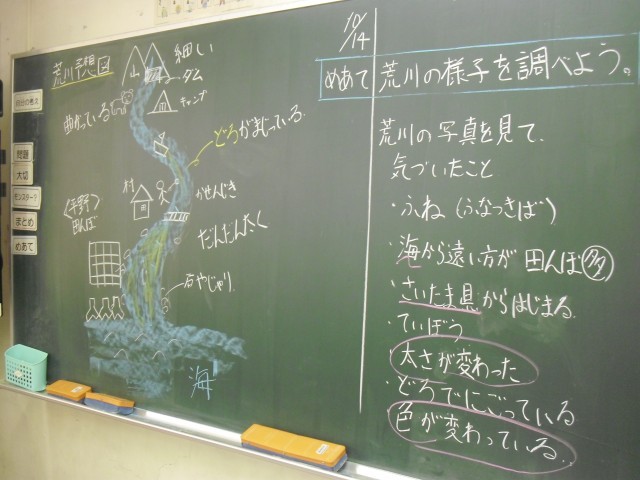 荒川予想図
細い
山
ダム
キャンプ
曲がっている
どろがまじっている。
村
かせんじき
〈平野〉
田んぼ
だんだんたく
石やじゃり
海
自分の考え
問題
大切
モンスター?
まとめ
めあて
10/14
めあて 荒川の様子を調べよう。
荒川の写真を見て、
気づいたこと
・ふね(ふなつきば)
・海から遠い方が田んぼ多
・さいたま県からはじまる。
・ていぼう
・太さが変わった
・どろでにごっている
・色が変わっている。